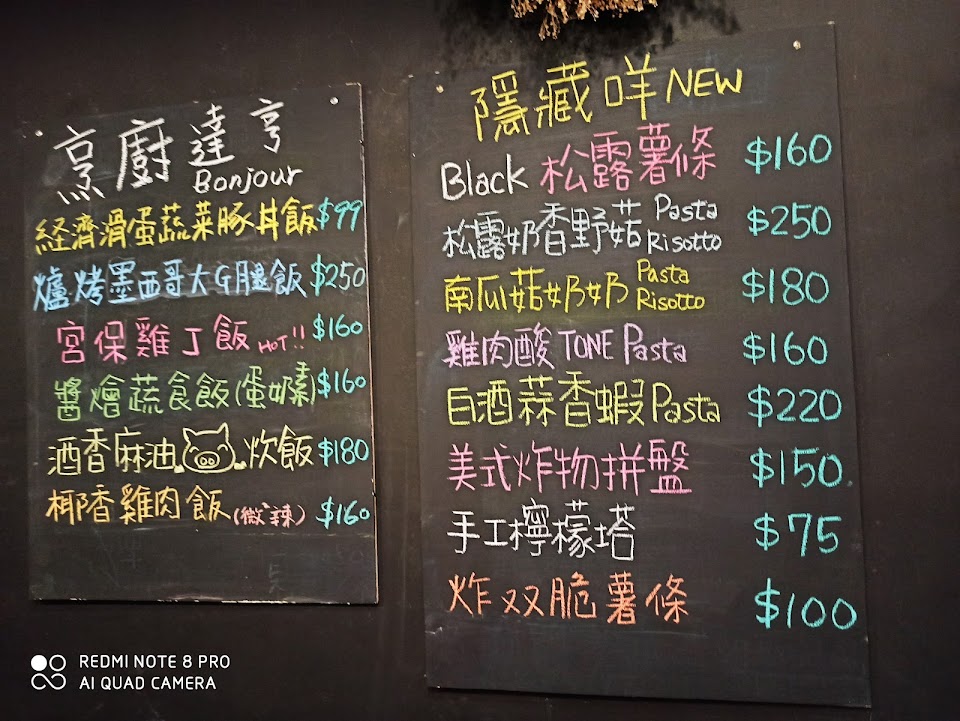 烹廚達亨
Bonjour
経濟滑蛋蔬菜豚丼飯$99
爐烤墨西哥大G腿飯$250
宮保雞丁飯HOT!! $160
醬燴蔬食飯(蛋奶素)$160
酒香麻油 炊飯$180
椰香雞肉飯(微辣) $160
隱藏咩NEW
Black 松露薯條 $160
松露奶香野菇 Pasta Risotto $250
南瓜菇奶奶 Pasta Risotto $180
雞肉酸 TONE Pasta $160
白酒蒜香蝦 Pasta $220
美式炸物拼盤 $150
手工檸檬塔 $75
炸双脆薯條 $100
REDMI NOTE 8 PRO
AI QUAD CAMERA